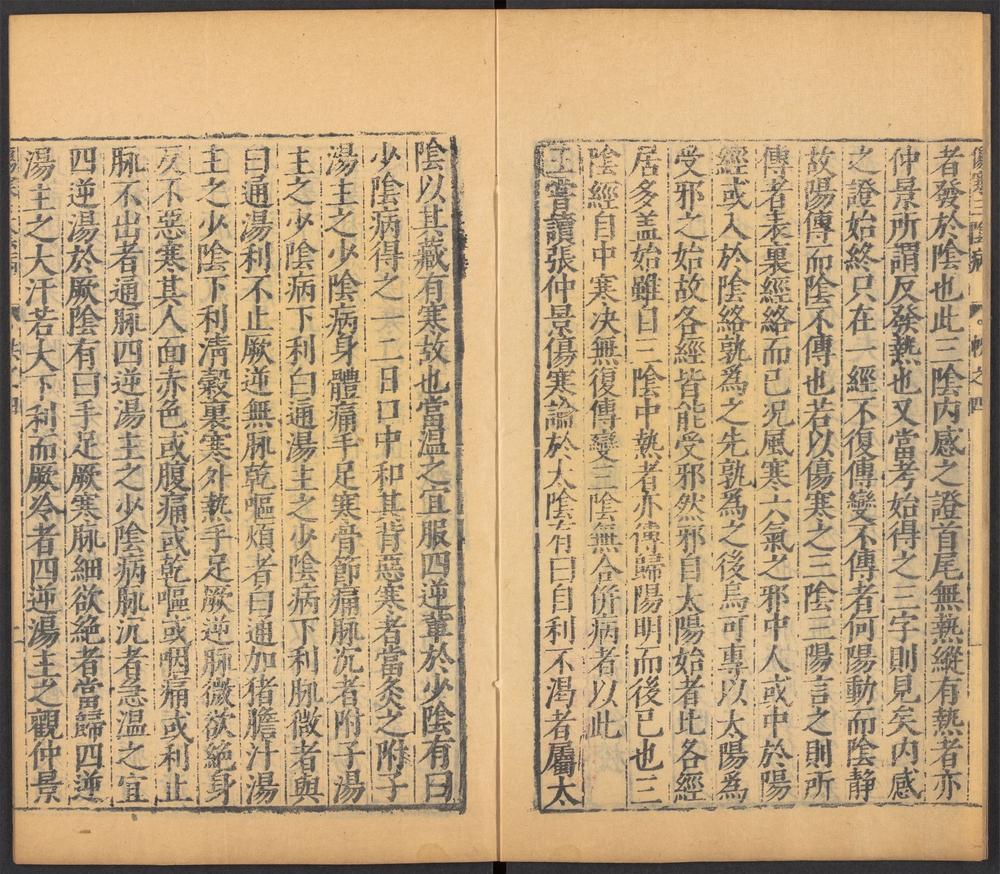 者發於陰也此三陰內感之證首尾無熱縱有熱者亦
仲景所謂反發熱也又當考始得之三字則見矣內感
之證始終只在一經不復傳變不傳者何陽動而陰静
故陽傳而陰不傳也若以傷寒之三陰三陽言之則所
傳者表裏經絡而已況風寒六氣之邪中人或中於陽
經或入於陰絡孰爲之先孰爲之後烏可專以太陽爲
受邪之始故各經皆能受邪然邪自太陽始者比各經
居多盖始雖自三陰中熱者亦傳歸陽明而後已也三
陰經自中寒决無復傳變三陰無合併病者以此
王嘗讀張仲景傷寒論於太陰有曰自利不渴者屬太
陰以其藏有寒故也當温之宜服四逆軰於少陰有曰
少陰病得之一二日口中和其背惡寒者當灸之附子
湯主之少陰病身體痛手足寒骨節痛脉沉者附子湯
主之少陰病下利白通湯主之少陰病下利脉微者與
曰通湯利不止厥逆無脉乾嘔煩者曰通加猪膽汁湯
主之少陰下利清穀裏寒外熱手足厥逆脉微欲絶身
反不惡寒其人面赤色或腹痛或乾嘔或咽痛或利止
脉不出者通脉四逆湯主之少陰病脉沉者急温之宜
四逆湯於厥陰有曰手足厥寒脉細欲絶者當歸四逆
湯主之大汗若大下利而厥冷者四逆湯主之觀仲景